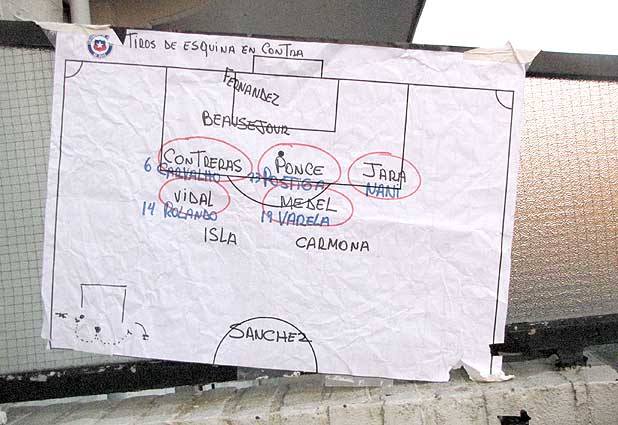 TIROS DE ESQUINA EN CONTRA
FERNANDEZ
BEAUSEJOUR
CONTRERAS PONCE JARA
6 CARVALHO 23 POSTIGA NANI
VIDAL MEDEL
14 ROLANDO 19 VARELA
ISLA CARMONA
SANCHEZ